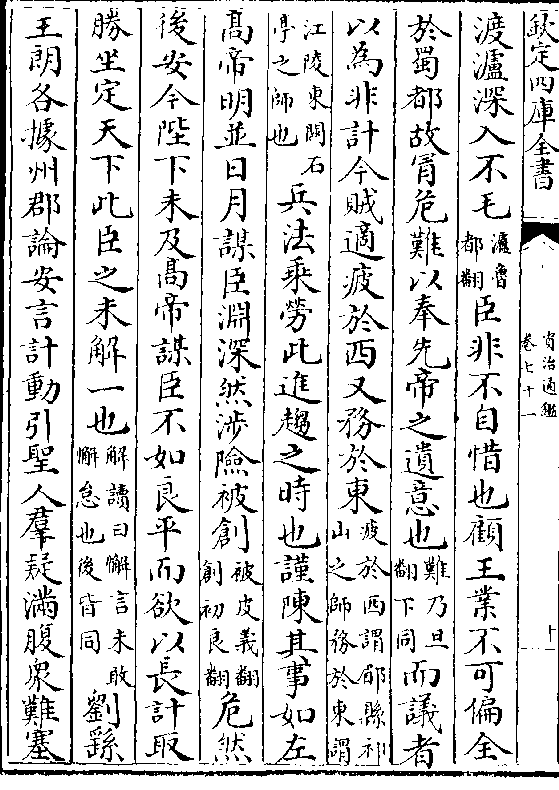 欽定四庫全書
資治通鑑
卷七十一
十
渡瀘深入不毛瀘魯都翻臣非不自惜也顧王業不可偏全
於蜀都故冐危難以奉先帝之遺意也難乃旦翻下同而議者
以為非計今賊適疲於西又務於東疲於西謂郿縣祁山之師務於東謂
江陵東闗石亭之師也兵法乘勞此進趨之時也謹陳其事如左
髙帝明並日月謀臣淵深然涉險被創被皮義翻創初良翻危然
後安今陛下未及髙帝謀臣不如良平而欲以長計取
勝坐定天下此臣之未解一也解讀曰懈言未敢懈怠也後皆同劉繇
王朗各據州郡論安言計動引聖人羣疑滿腹衆難塞